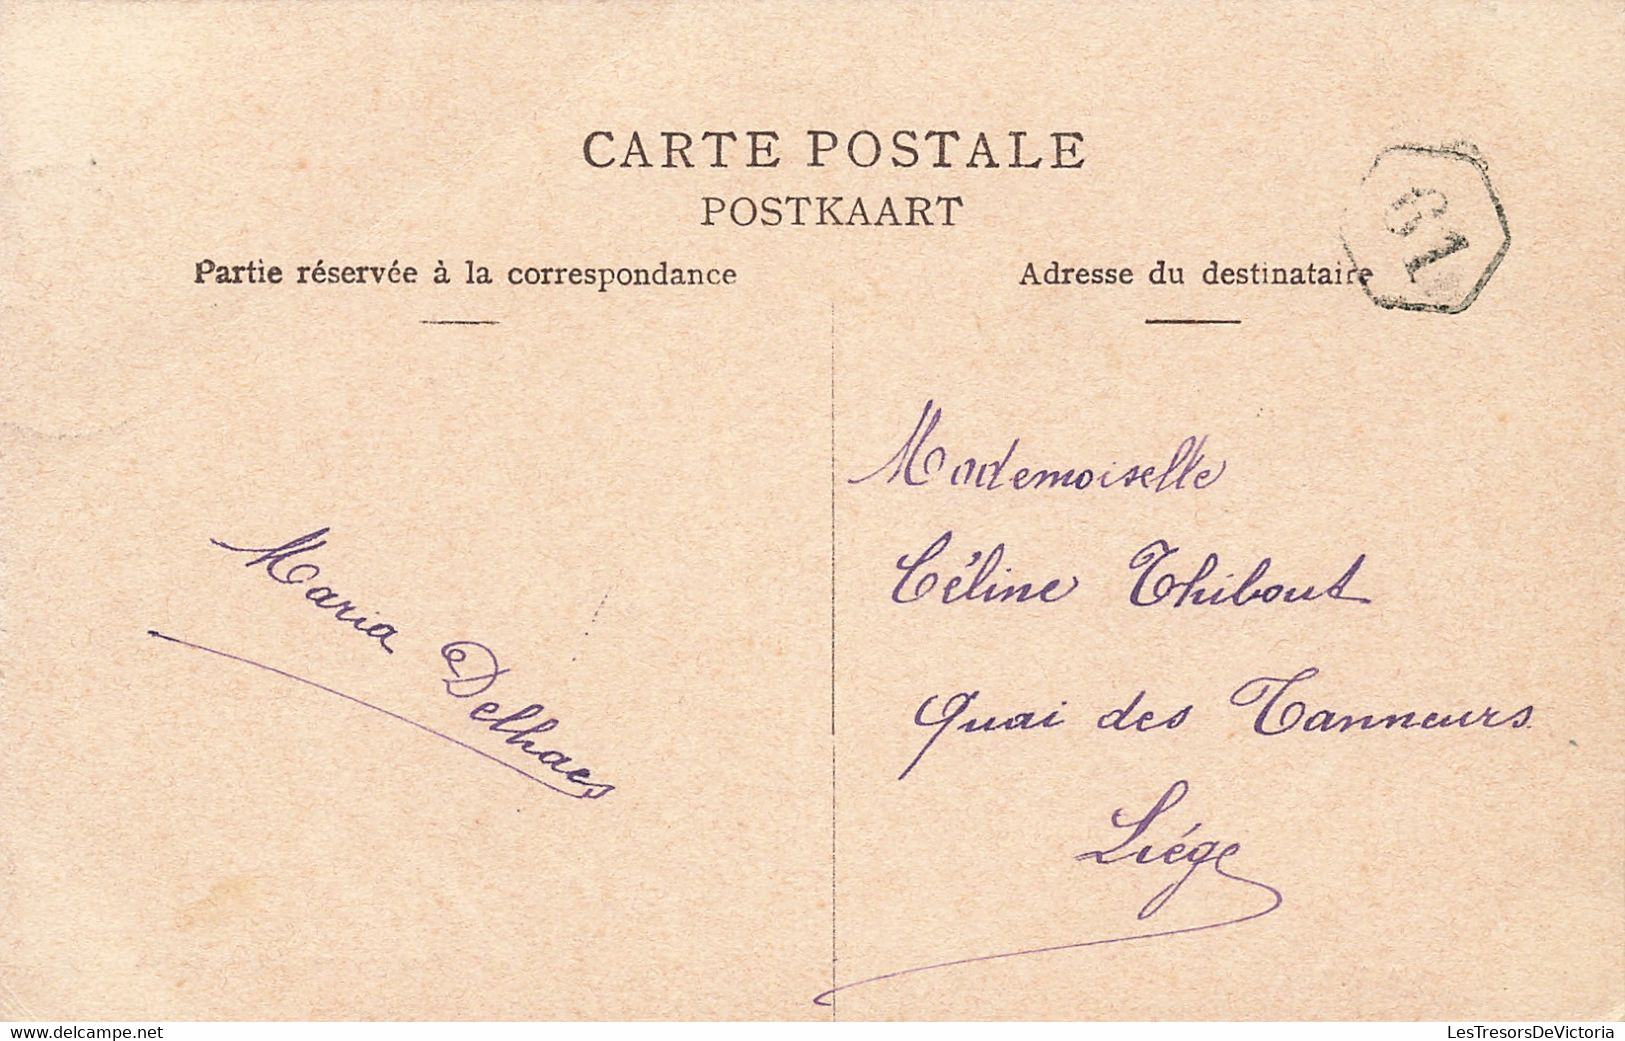 CARTE POSTALE
POSTKAART
Partie réservée à la correspondance
Adresse du destinataire
61
Maria Delhaes
Mademoiselle
Céline Thibout
Quai des Tanneurs
Liége
www.delcampe.net
LesTresorsDeVictoria